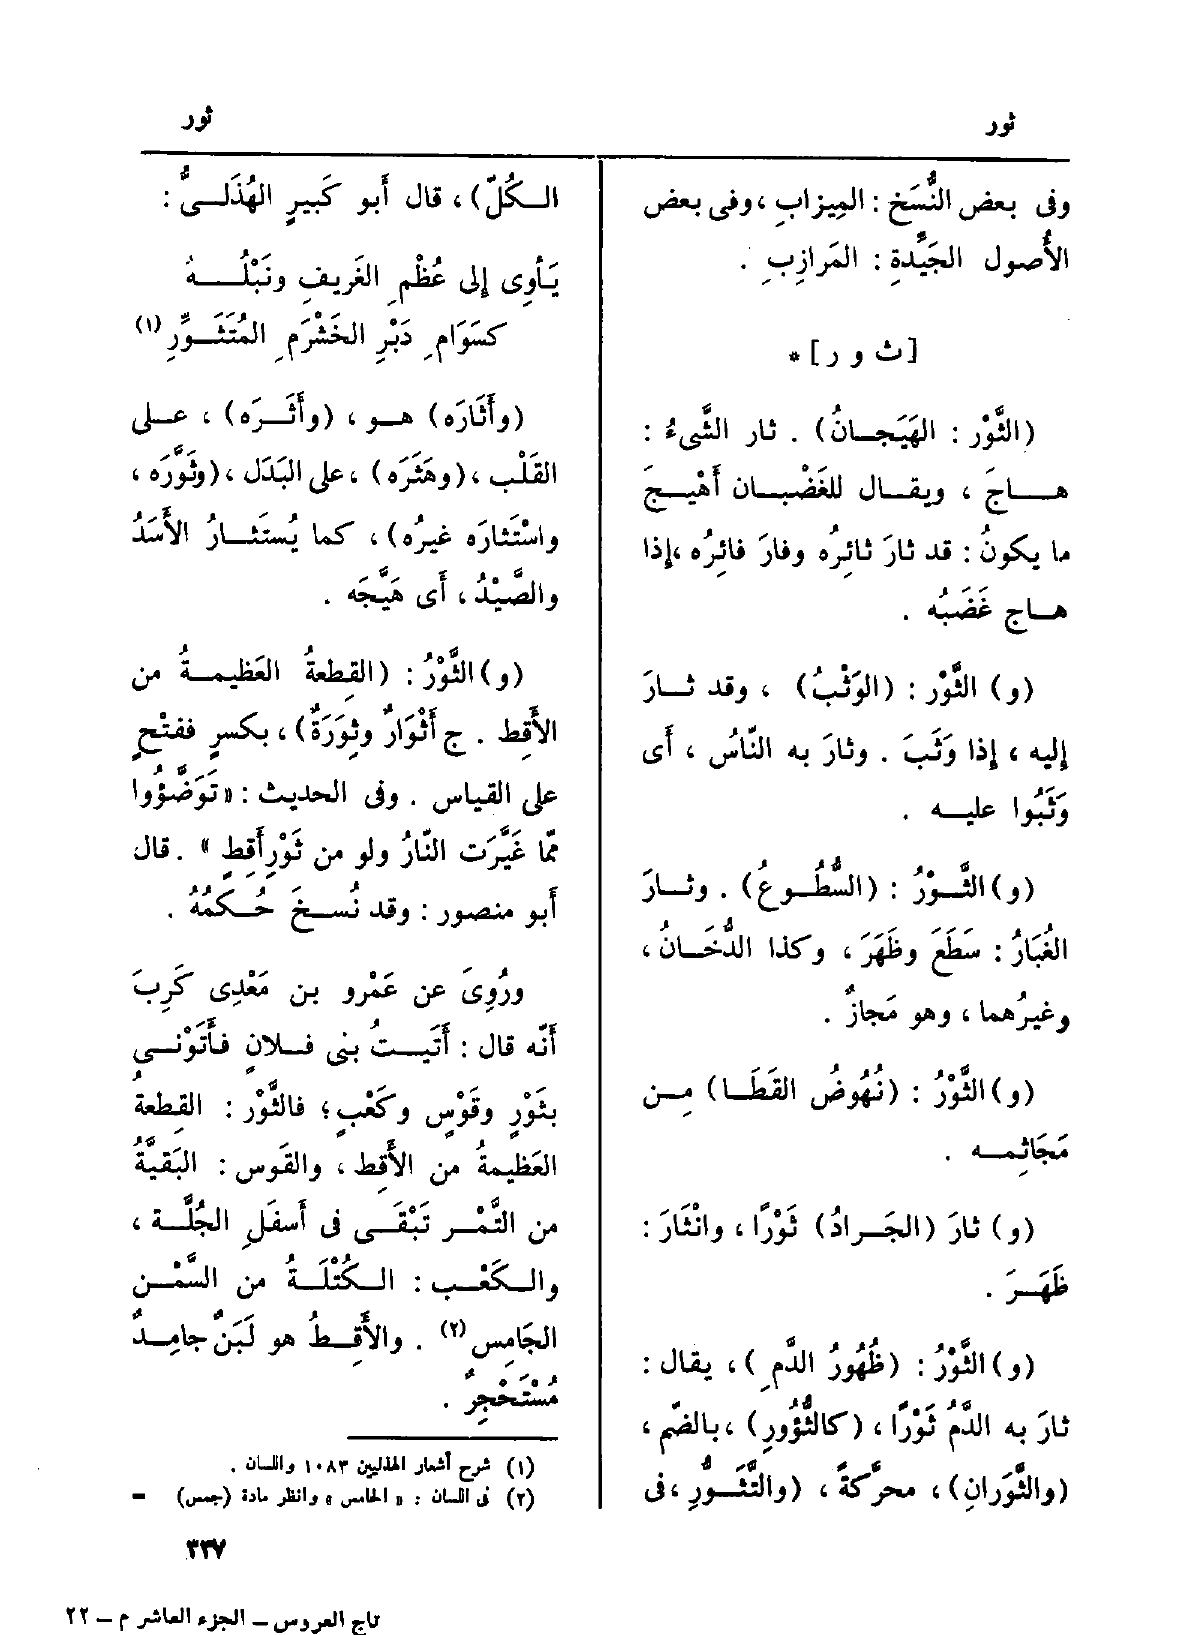 ثور
ثور
وفى بعض النُّسَخ : المِيزابِ ، وفى بعض
الأُصول الجَيِّدةِ : المَرازِبِ .
[ث و ر] *
(الثَّوْر : الهَيَجـانُ) . ثار الشَّىءُ :
هـاجَ ، ويقـال للغَضْبـان أَهْيـجَ
ما يكونُ : قد ثارَ ثائِرُه وفارَ فائِرُه ، إذا
هـاج غَضَبُه .
(و) الثَّوْر : (الوَثْبُ) ، وقد ثـارَ
إليه ، إذا وَثَبَ . وثارَ به النّاسُ ، أَى
وَثَبُوا عليـه .
(و) الثَّـوْرُ : (السُّطُـوعُ) . وثـارَ
الغُبَارُ : سَطَعَ وظَهَرَ ، وكذا الدُّخَـانُ ،
وغيرُهما ، وهو مَجازٌ .
(و) الثَّوْرُ : (نُهُوضُ القَطَـا) مِـن
مَجَاثِمـه .
(و) ثارَ (الجَـرادُ) ثَوْرًا ، وانْثَارَ :
ظَهَـرَ .
(و) الثَّوْرُ : (ظُهُورُ الدَّمِ) ، يقال :
ثارَ به الدَّمُ ثَوْرًا ، (كالثُّؤُورِ) ، بالضّم ،
(والثَّوَرانِ) ، محرَّكةً ، (والتَّثَـوُّرِ ، فى
الـكُلّ) ، قال أَبو كَبيرٍ الهُذَلـىُّ :
يَأوِى إلى عُظْمِ الغَريفِ ونَبْلُـــهُ
كسَوَامِ دَبْرِ الخَشْرَمِ المُتَثَـوِّرِ (١)
(وأَثَارَه) هـو ، (وأَثَـرَه) ، عـلى
القَلْب ، (وهَثَرَه) ، على البَدَل ، (وثَوَّرَه ،
واسْتَثارَه غيرُه) ، كما يُستَثـارُ الأَسَدُ
والصَّيْدُ ، أَى هَيَّجَه .
(و) الثَّوْرُ : (القِطعةُ العَظيمـةُ من
الأَقِط . ج أَثْوَارٌ وثِوَرَةٌ) ، بكسرٍ ففتْحٍ
على القياس . وفى الحديث : « تَوَضَّؤُوا
ممّا غَيَّرَت النّارُ ولو من ثَوْرِ أَقِطٍ » . قال
أَبو منصور : وقد نُسـخَ حُـكمُهُ .
ورُوِىَ عن عَمْرو بن مَعْدِى كَرِبَ
أَنّه قال : أَتَيـتُ بنى فـلانٍ فـأَتَوْنـى
بثَوْرٍ وقَوْسٍ وكَعْبٍ ؛ فالثَّوْر : القِطعةُ
العَظيمةُ من الأَقِط ، والقَوس : البَقيَّةُ
من التَّمْـر تَبْقَـى فى أَسفَلِ الجُلَّـة ،
والـكَعْـب : الـكُتْلَـةُ من السَّمْـن
الجَامِس (٢) . والأَقِـطُ هو لَبَنٌ جامِـدٌ
مُسْتَحْجِرٌ .
(١) شرح أشعار الهذليين ١٠٨٣ واللسان .
(٢) فى اللسان : « الخامس » وانظر مادة (جمس) =
٣٣٧
تاج العروس – الجزء العاشر م – ٢٢